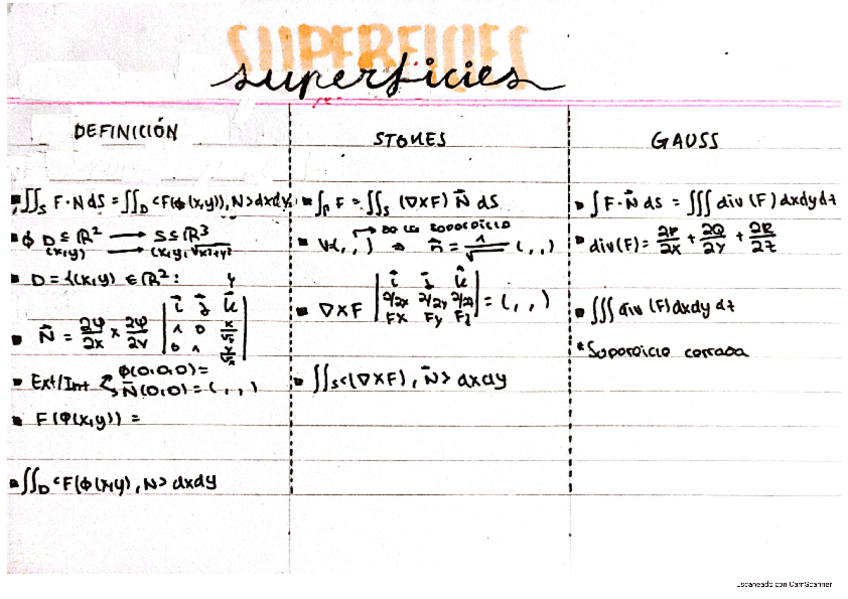 SUPERFICIES
superficies
DEFINICIÓN
▪ ∬_S F·N dS = ∬_D <F(ϕ(x,y)), N> dxdy
▪ ϕ D ⊆ ℝ² ⟶ S ⊆ ℝ³
(x,y) ⟶ (x,y,√x²+y²
▪ D = {(x,y) ∈ ℝ² : y
▪ N⃗ = ∂φ/∂x × ∂φ/∂y | i⃗ j⃗ k⃗ | 1 0 x/√ | 0 1 x/√ |
▪ Ext/Int ϕ(0,0,0) =
N⃗(0,0) = ( , , )
▪ F(ϕ(x,y)) =
▪ ∬_D <F(ϕ(x,y), N> dxdy
STOKES
▪ ∫_Γ F = ∬_S (∇×F) N⃗ dS
DE LA SUPERFICIE
▪ ∇( , , ) ⇒ n⃗ = 1/√ ( , , )
▪ ∇×F | i j k | ∂/∂x ∂/∂y ∂/∂z | Fx Fy Fz | = ( , , )
▪ ∬_S <(∇×F), N⃗> dxdy
GAUSS
▪ ∫ F·N⃗ dS = ∭ div (F) dxdydz
▪ div(F) = ∂P/∂x + ∂Q/∂y + ∂R/∂z
▪ ∭ div (F) dxdy dz
*Superficie cerrada
Escaneado con CamScanner